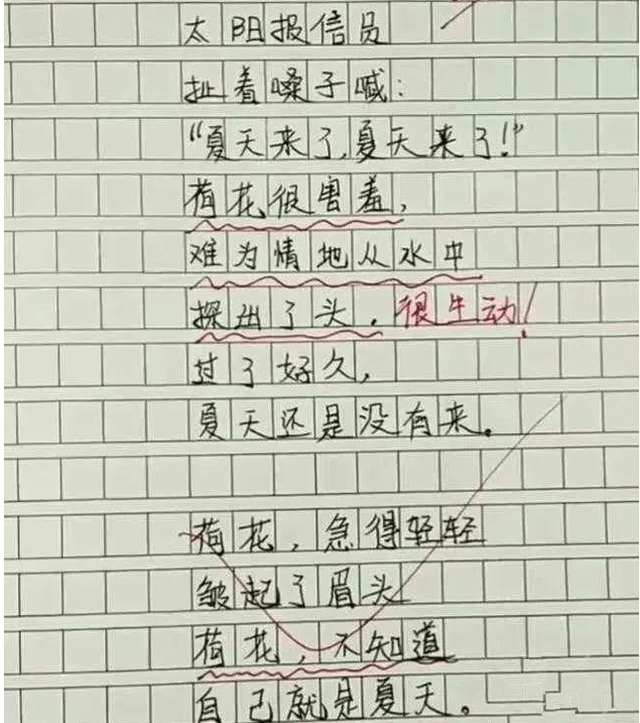 太阳报信员
扯着嗓子喊:
“夏天来了,夏天来了!”
荷花很害羞,
难为情地从水中
探出了头。很生动!
过了好久,
夏天还是没有来。
荷花,急得轻轻
皱起了眉头
荷花,不知道
自己就是夏天。